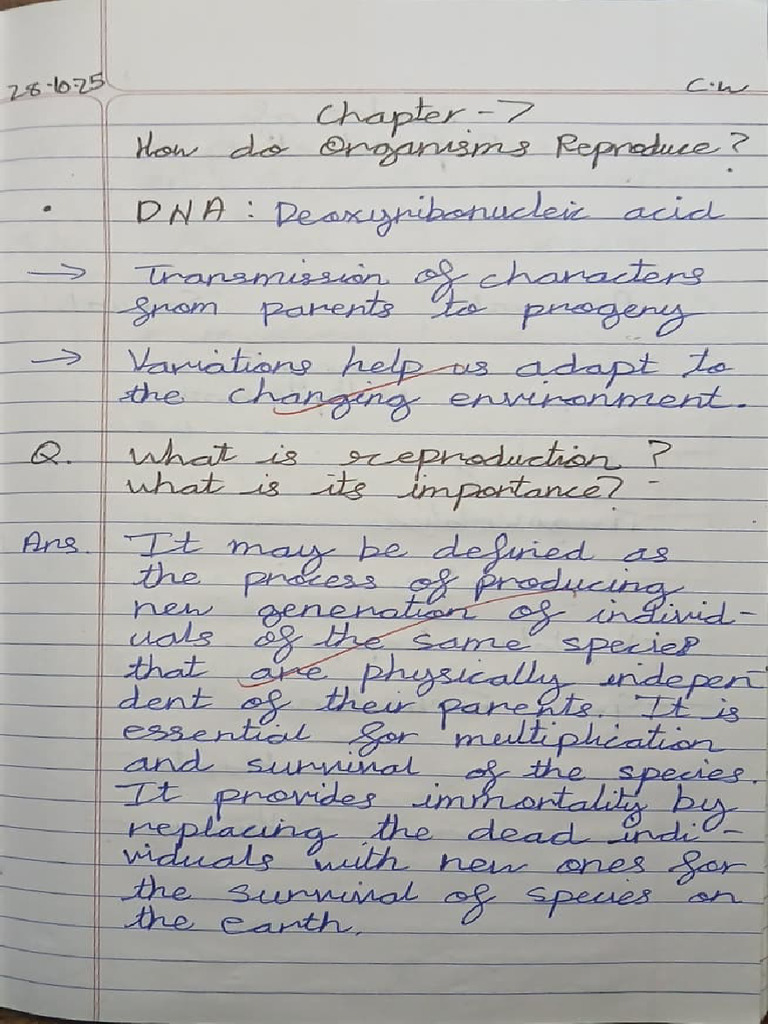 28-10-25
C.W
Chapter - 7
How do Organisms Reproduce?
• DNA : Deoxyribonucleic acid
→ Transmission of characters
from parents to progeny
→ Variations help us adapt to
the changing environment.
Q. What is reproduction?
What is its importance?
Ans. It may be defined as
the process of producing
new generation of individ-
uals of the same species
that are physically indepen
dent of their parents. It is
essential for multiplication
and survival of the species.
It provides immortality by
replacing the dead indi-
viduals with new ones for
the survival of species on
the earth.